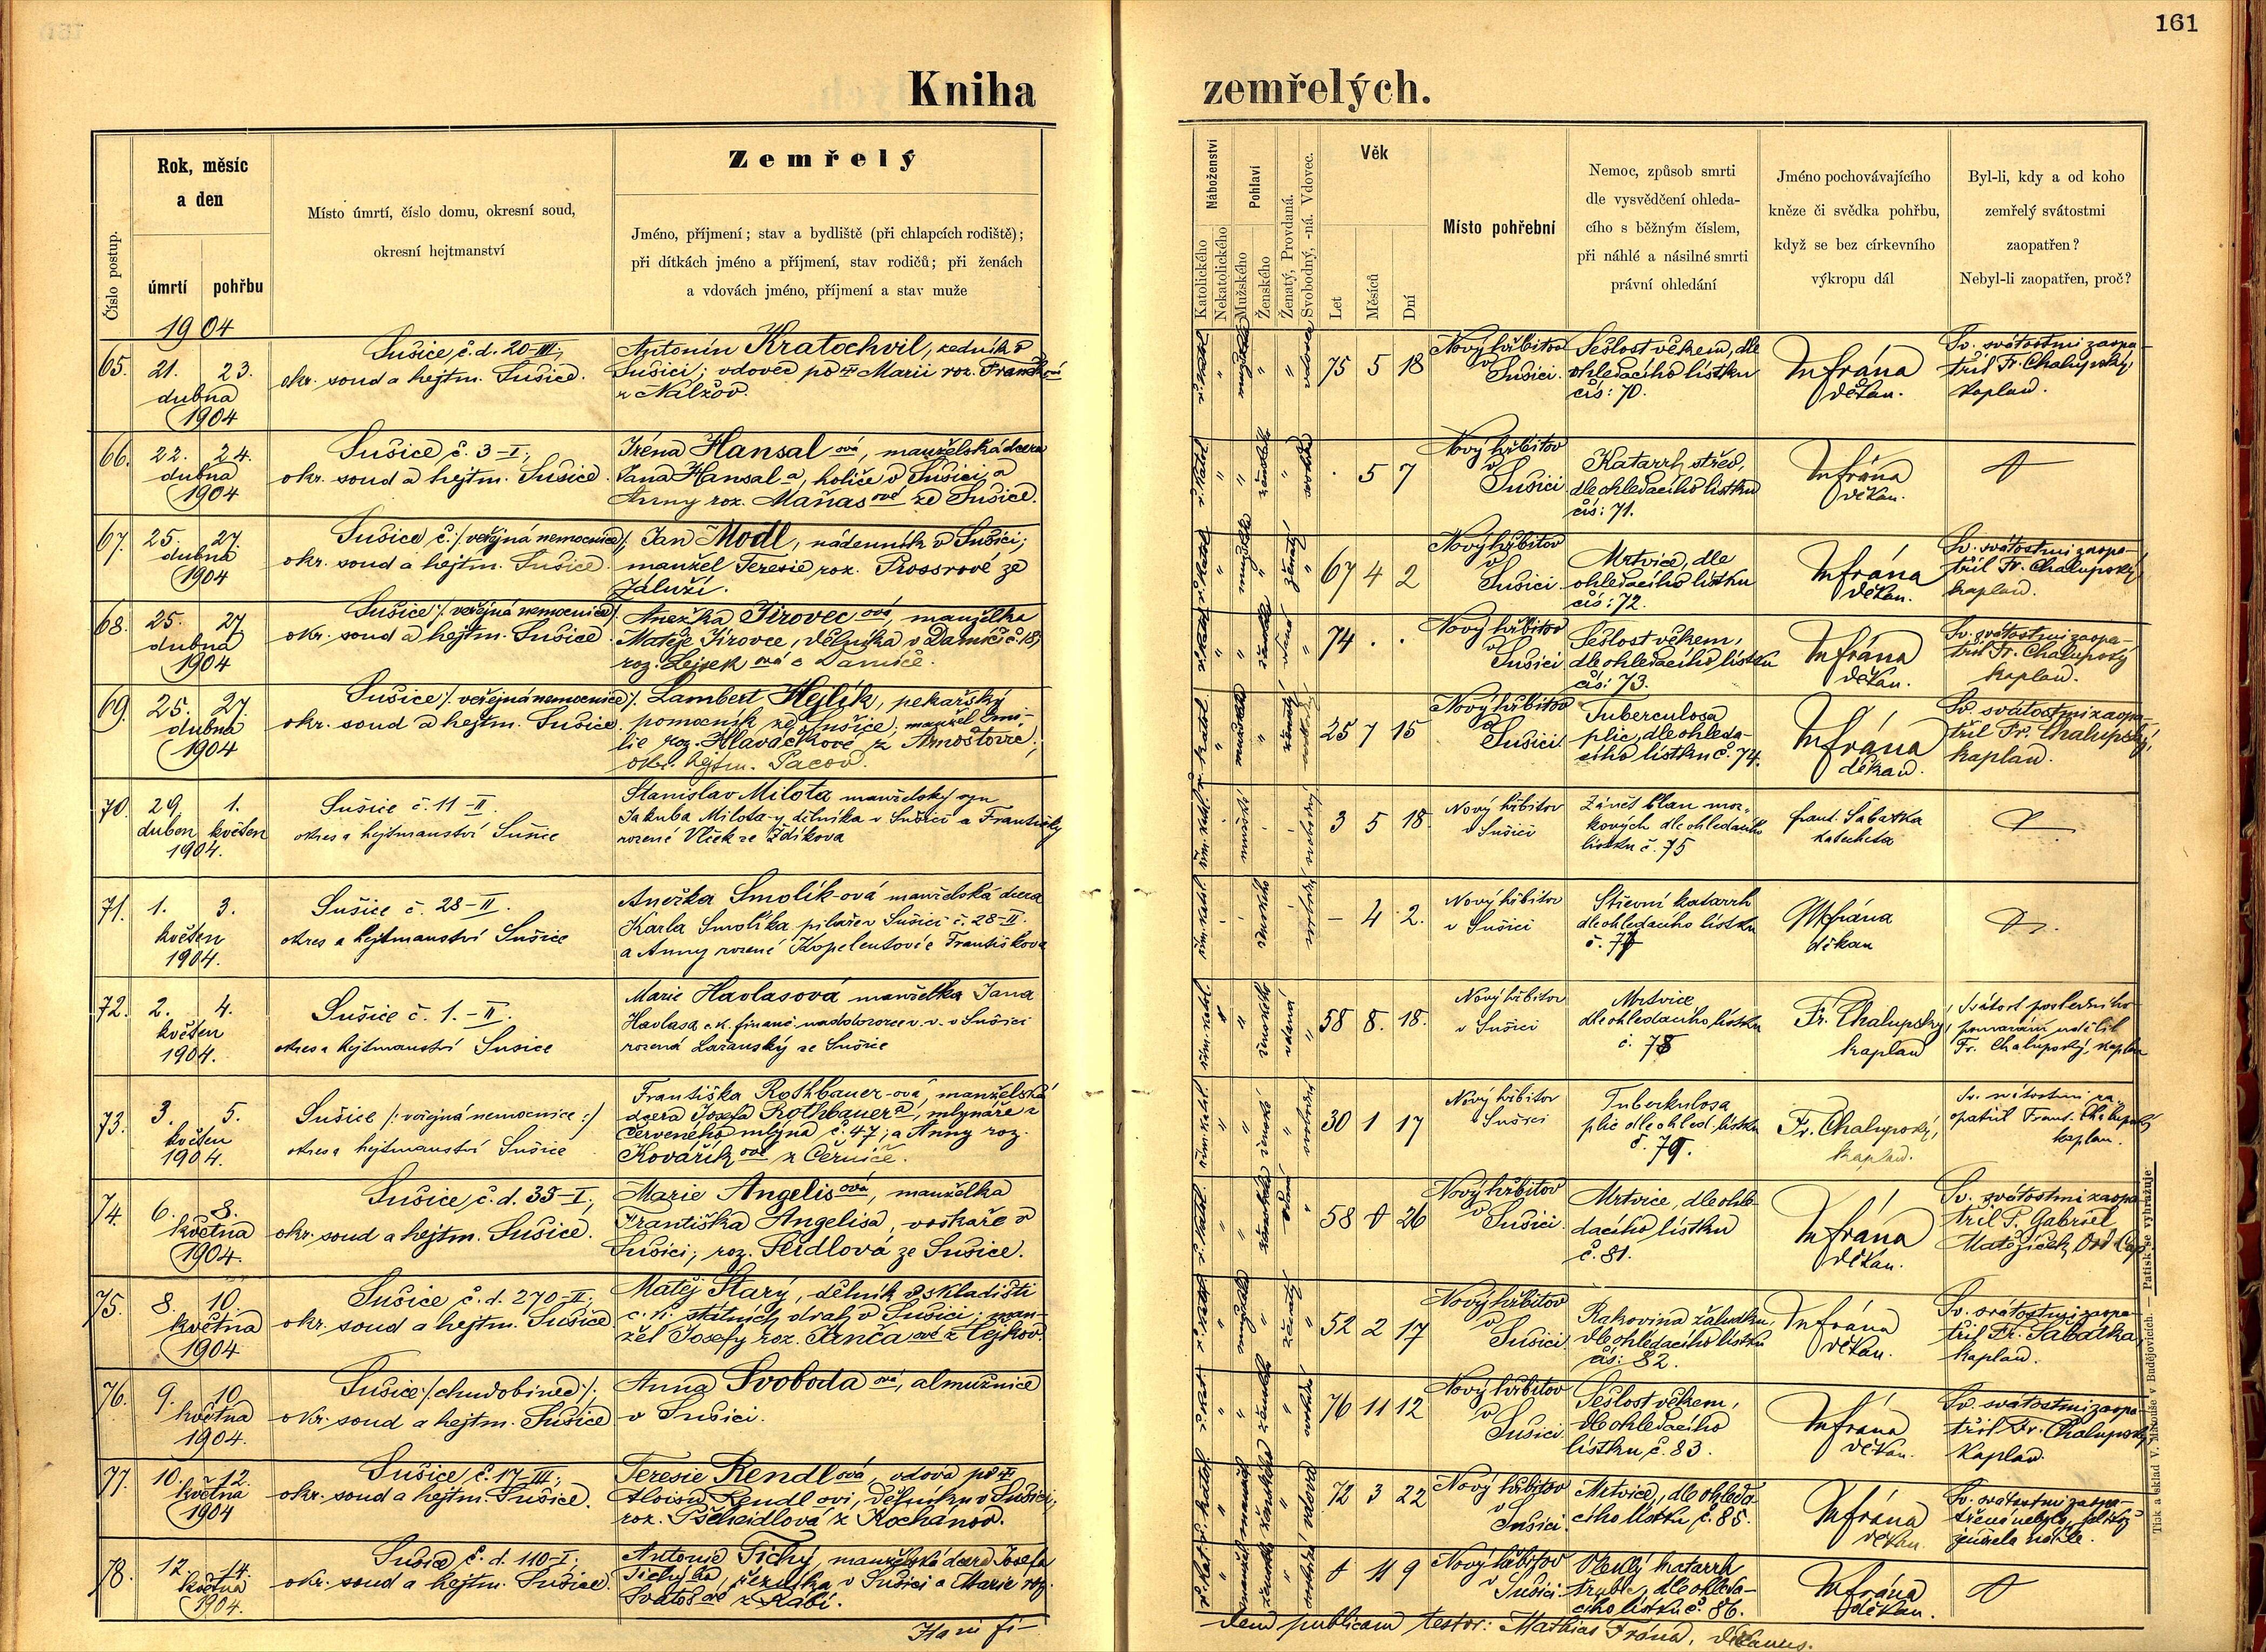 161
Kniha zemřelých.
Číslo postup.
Rok, měsíc
a den
úmrtí
pohřbu
Místo úmrtí, číslo domu, okresní soud,
okresní hejtmanství
Zemřelý
Jméno, příjmení; stav a bydliště (při chlapcích rodiště);
při dítkách jméno a příjmení, stav rodičů; při ženách
a vdovách jméno, příjmení a stav muže
Náboženství
Katolického
Nekatolického
Pohlaví
Mužského
Ženského
Ženatý, Provdaná.
Svobodný, -ná. Vdovec.
Věk
Let
Měsíců
Dní
Místo pohřební
Nemoc, způsob smrti
dle vysvědčení ohleda-
cího s běžným číslem,
při náhlé a násilné smrti
právní ohledání
Jméno pochovávajícího
kněze či svědka pohřbu,
když se bez církevního
výkropu dál
Byl-li, kdy a od koho
zemřelý svátostmi
zaopatřen?
Nebyl-li zaopatřen, proč?
1904
65.
21. 23.
dubna
1904
Sušice č.d. 20-III;
okr. soud a hejtm. Sušice.
Antonín Kratochvil, ředník v
Sušici; vdovec po † Marii roz.
z Nalžov.
75 5 18
Nový hřbitov
v
Sušici.
Sešlost věkem, dle
ohledacího lístku
čís: 70.
M Frána
děkan.
Sv. svátostmi zaopa-
třil Fr. Chalupský,
kaplan.
66.
22. 24.
dubna
1904
Sušice č. 3-I;
okr. soud a hejtm. Sušice.
Iréna Hansalová, manželská dcera
Jana Hansala, holiče v Sušici, a
Anny roz. Maňasové ze Sušice.
. 5 7
Nový hřbitov
v
Sušici
Katarrh střev,
dle ohledacího lístku
čís: 71.
M Frána
děkan.
67.
25. 27.
dubna
1904
Sušice č. /: veřejná nemocnice :/;
okr. soud a hejtm. Sušice.
Jan Modl, nádenník v Sušici;
manžel Teresie roz. Prossrové ze
Záluží.
67 4 2
Nový hřbitov
v
Sušici
Mrtvice, dle
ohledacího lístku
čís: 72.
M Frána
děkan.
Sv. svátostmi zaopa-
třil Fr. Chalupský
kaplan.
68.
25. 27
dubna
1904
Sušice /: veřejná nemocnice :/
okr. soud a hejtm. Sušice.
Anežka Jírovecová, manželka
Matěje Jírovce, dělníka v Damíč č. 18,
roz.
74 . .
Nový hřbitov
v
Sušici
Sešlost věkem,
dle ohledacího lístku
čís: 73.
M Frána
děkan.
Sv. svátostmi zaopa-
třil Fr. Chalupský
kaplan.
69.
25. 27.
dubna
1904
Sušice /: veřejná nemocnice :/
okr. soud a hejtm. Sušice
Lambert Hejlík, pekařský
pomocník ze Sušice, manžel Emi-
lie roz. Hlaváčkové z Arnoštovic;
okr. hejtm. Pacov.
25 7 15
Nový hřbitov
v
Sušici
Tuberculosa
plic, dle ohleda-
cího lístku č. 74.
M Frána
děkan.
Sv. svátostmi zaopa-
třil Fr. Chalupský,
kaplan.
70.
29 1.
duben květen
1904.
Sušice č. 11-II.
okres a hejtmanství Sušice
Stanislav Milota manželský syn
Jakuba Milota-y dělníka v Sušici a Františky
rozené Vlček ze Zdíkova
3 5 18
Nový hřbitov
v Sušici
Zánět blan moz-
kových dle ohledacího
lístku č. 75
Frant. Šabatka
katecheta
71.
1. 3.
květen
1904.
Sušice č. 28-II.
okres a hejtmanství Sušice
Anežka Smolík-ová manželská dcera
Karla Smolíka pilaře v Sušici č. 28-II.
a Anny rozené
- 4 2.
Nový hřbitov
v Sušici
Střevní katarrh
dle ohledacího lístku
M Frána
děkan
72.
2. 4.
květen
1904.
Sušice č. 1.-II.
okres a hejtmanství Sušice
Marie Havlasová manželka Jana
Havlasa c.k. finanč. naddozorce v.v. v Sušici
rozená Lažanský ze Sušice
58 8. 18.
Nový hřbitov
v Sušici
Mrtvice
dle ohledacího lístku
č. 78
Fr. Chalupský,
kaplan
Svátost posledního
pomazání udělil
Fr. Chalupský, kaplan
73.
3. 5.
květen
1904.
Sušice /: veřejná nemocnice :/
okres a hejtmanství Sušice
Františka Rothbauer-ová, manželská
dcera Josefa Rothbauera, mlynáře z
Červeného mlýna č. 47; a Anny roz.
Kovaříkové z Černíč.
30 1 17
Nový hřbitov
v Sušici
Tuberkulosa
plic dle ohled. lístku
č. 79.
Fr. Chalupský,
kaplan.
Sv. svátostmi za-
opatřil Frant. Chalupský
kaplan.
74.
6. 8.
května
1904.
Sušice, č.d. 35-I;
okr. soud a hejtm. Sušice.
Marie Angelisová, manželka
Františka Angelisa, voskaře v
Sušici; roz. Seidlová ze Sušice.
58 26
Nový hřbitov
v
Sušici.
Mrtvice, dle ohle-
dacího lístku
č. 81.
M Frána
děkan.
Sv. svátostmi zaopa-
třil P. Gabriel
Matějíček, Ord. Cap.
75.
8. 10.
května
1904
Sušice č.d. 270-II;
okr. soud a hejtm. Sušice
Matěj Starý, dělník v skladišti
c.k. státních drah v Sušici; man-
žel Josefy roz. Jančaové z Čejkov.
52 2 17
Nový hřbitov
v
Sušici
Rakovina žaludku,
dle ohledacího lístku
čís: 82.
M Frána
děkan.
Sv. svátostmi zaopa-
třil Fr. Šabatka,
kaplan.
76.
9. 10
května
1904.
Sušice /: chudobinec :/;
okr. soud a hejtm. Sušice
Anna Svobodaová, almužnice
v Sušici.
76 11 12
Nový hřbitov
v
Sušici.
Sešlost věkem,
dle ohledacího
lístku č. 83.
M Frána
děkan.
Sv. svátostmi zaopa-
třil Fr. Chalupský
kaplan.
77.
10. 12.
května
1904
Sušice, č. 17-III;
okr. soud a hejtm. Sušice.
Teresie Rendlová, vdova po †
Aloisu Rendlovi, dělníku v Sušici;
roz. Pscheidlová z Rochanov.
72 3 22
Nový hřbitov
v
Sušici.
Mrtvice, dle ohleda-
cího lístku č. 85.
M Frána
děkan.
Sv. svátostmi zaopa-
třena nebyla, jelikož
zemřela náhle.
78.
12. 14.
května
1904.
Sušice č.d. 110-I;
okr. soud a hejtm. Sušice.
Antonie Tichý, manželská dcera Josefa
Tichýho, řezníka v Sušici a Marie roz.
Svatošové z Rabí.
11 9
Nový hřbitov
v
Sušici
Vleklý katarrh
dle ohleda-
cího lístku č. 86.
M Frána
děkan.
Hanc fi-
dem publicam testor: Mathias Frána, decanus.
Tisk a sklad V. Matouše v Budějovicích. Patisk se vyhražuje